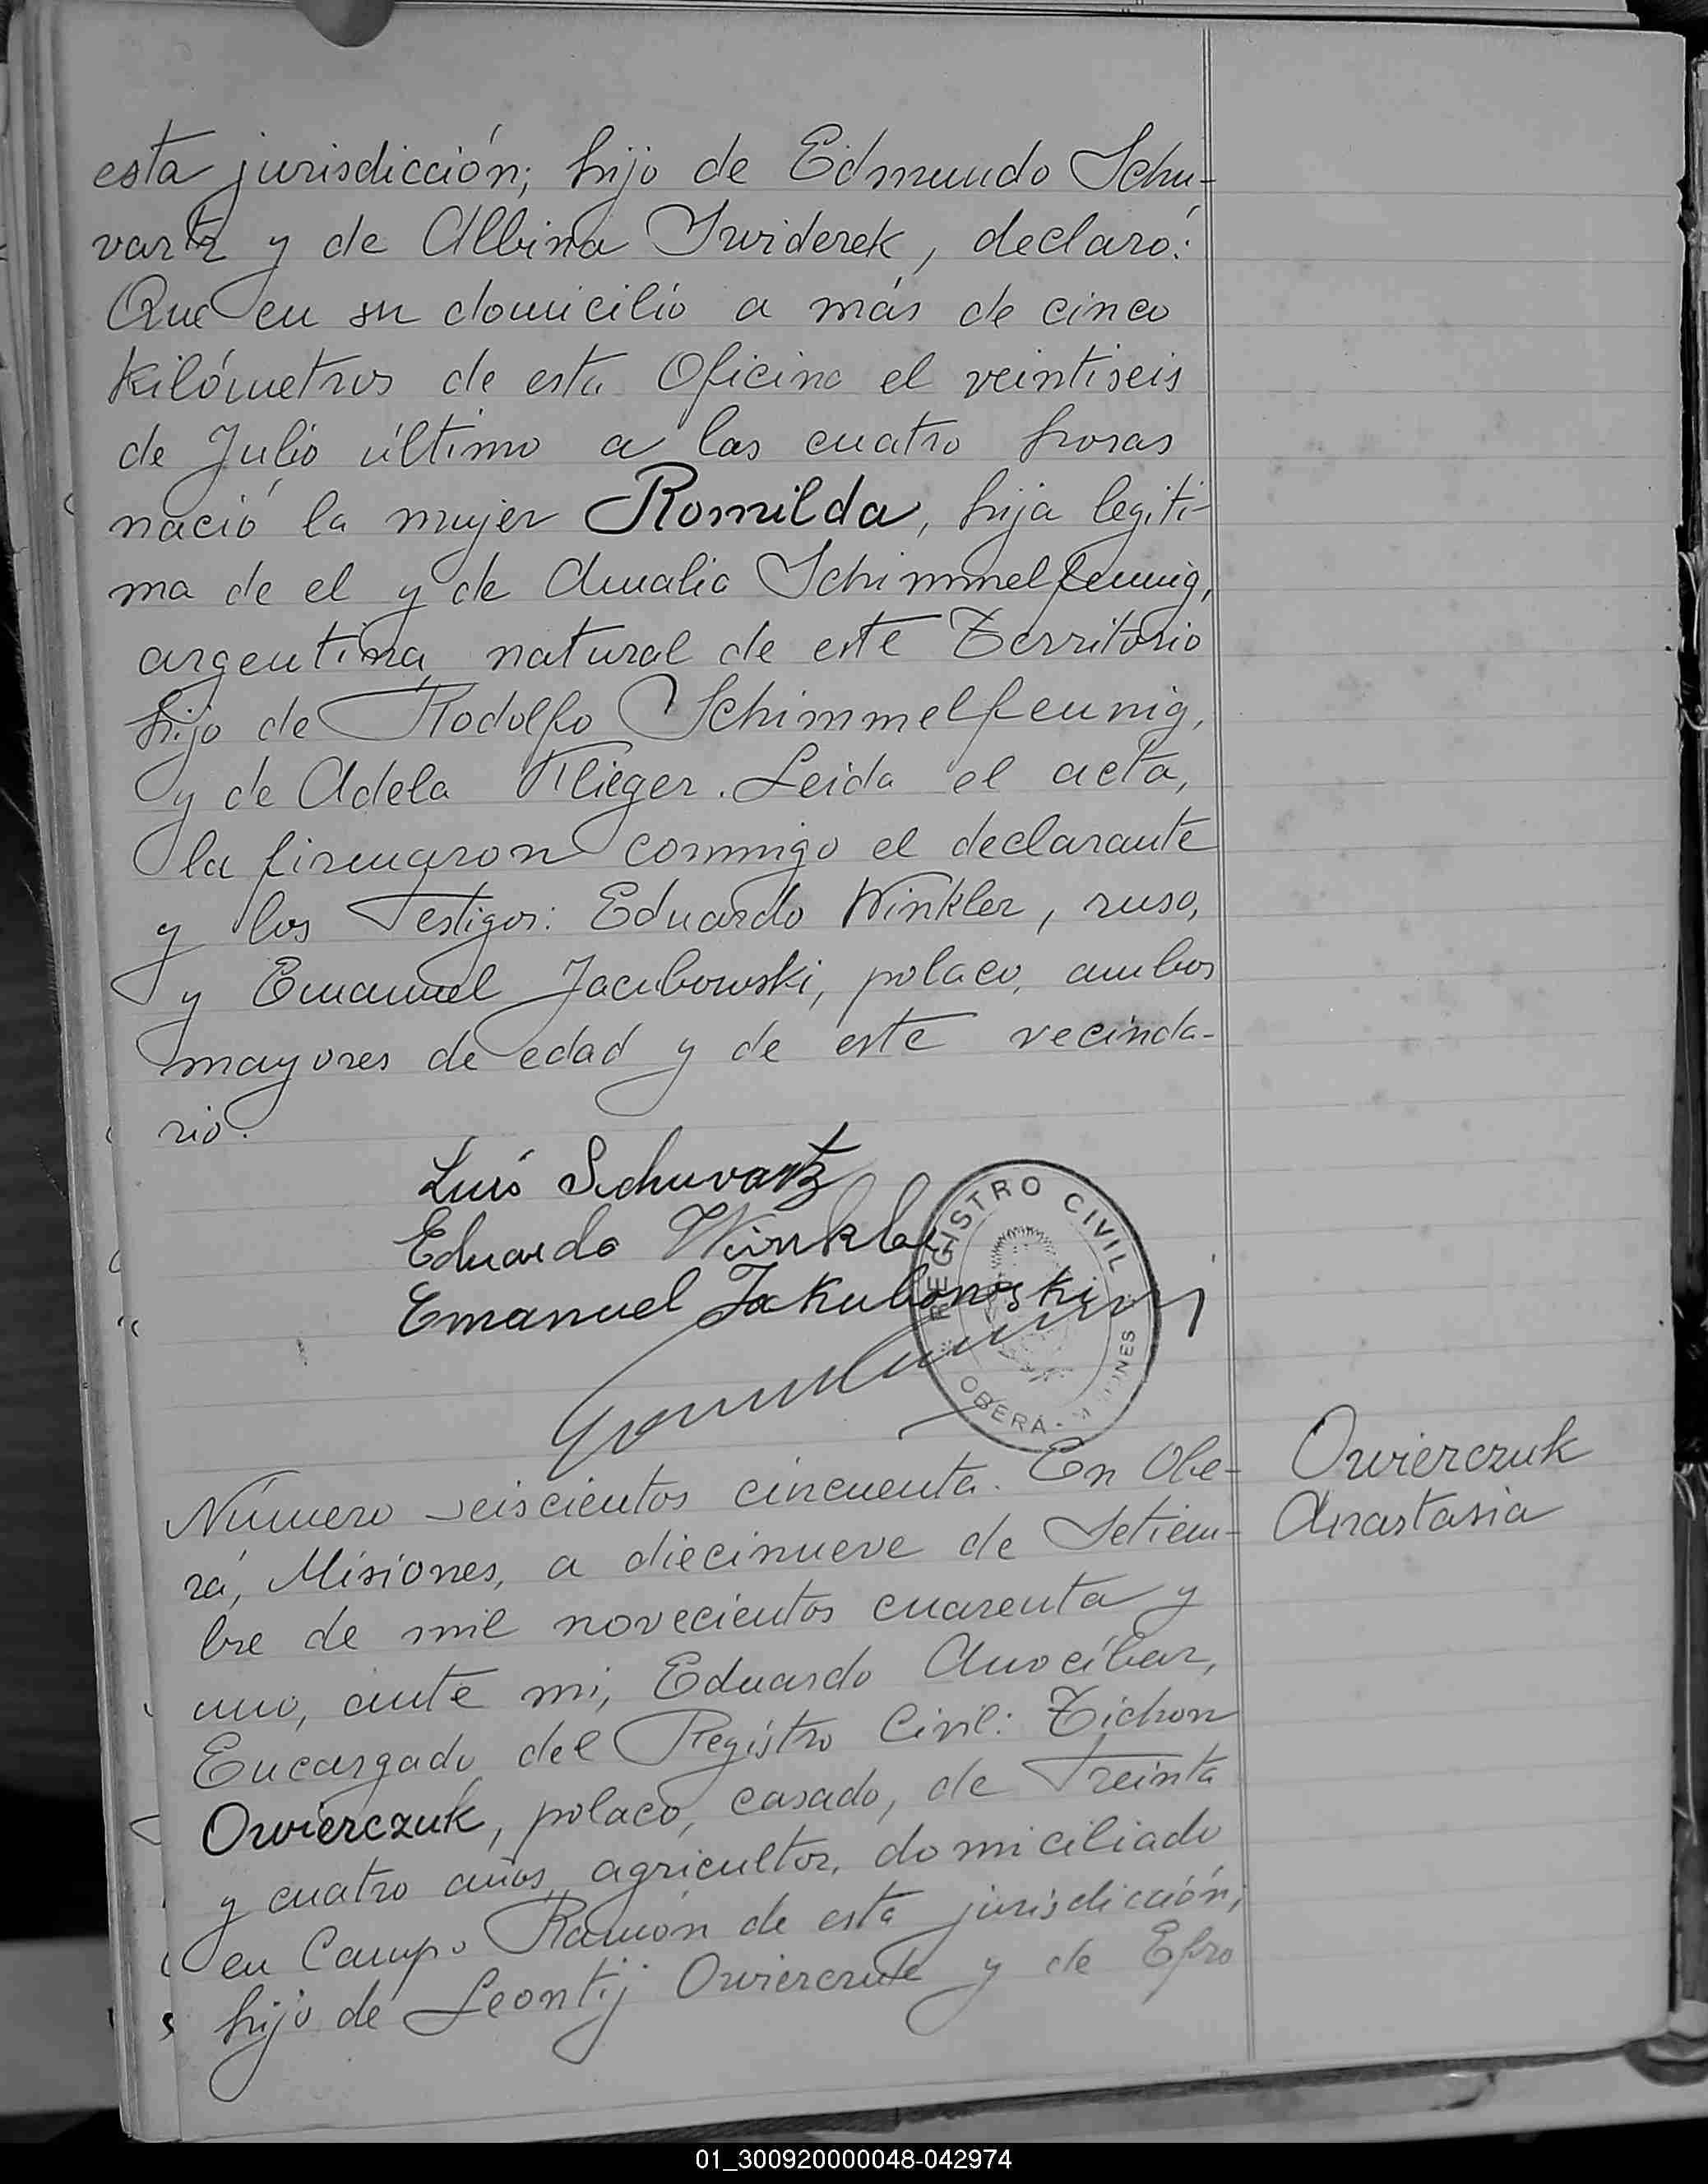 esta jurisdicción; hijo de Edmundo Schu-
vartz y de Albina Swiderek, declaró:
Que en su domicilio a más de cinco
kilómetros de esta Oficina el veintiseis
de Julio último a las cuatro horas
nació la mujer Romilda, hija legiti-
ma de el y de Amalia Schimmelfennig,
argentina, natural de este Territorio
hijo de Rodolfo Schimmelfennig,
y de Adela Klieger. Leida el acta,
la firmaron conmigo el declarante
y los Testigos: Eduardo Winkler, ruso,
y Emanuel Jacubowski, polaco, ambos
mayores de edad y de este vecinda-
rio.
Luis Schuvartz
Eduardo Winkler
Emanuel Jakubowski
REGISTRO CIVIL
OBERÁ - MISIONES
Número seiscientos cincuenta. En Obe-
rá, Misiones, a diecinueve de Setiem-
bre de mil novecientos cuarenta y
uno, ante mi, Eduardo Anocíbar,
Encargado del Registro Civil: Tichon
Owierczuk, polaco, casado, de Treinta
y cuatro años, agricultor, domiciliado
en Campo Ramón de esta jurisdicción;
hijo de Leontij Owierczuk y de Efro
Owierczuk
Anastasia
01_300920000048-042974